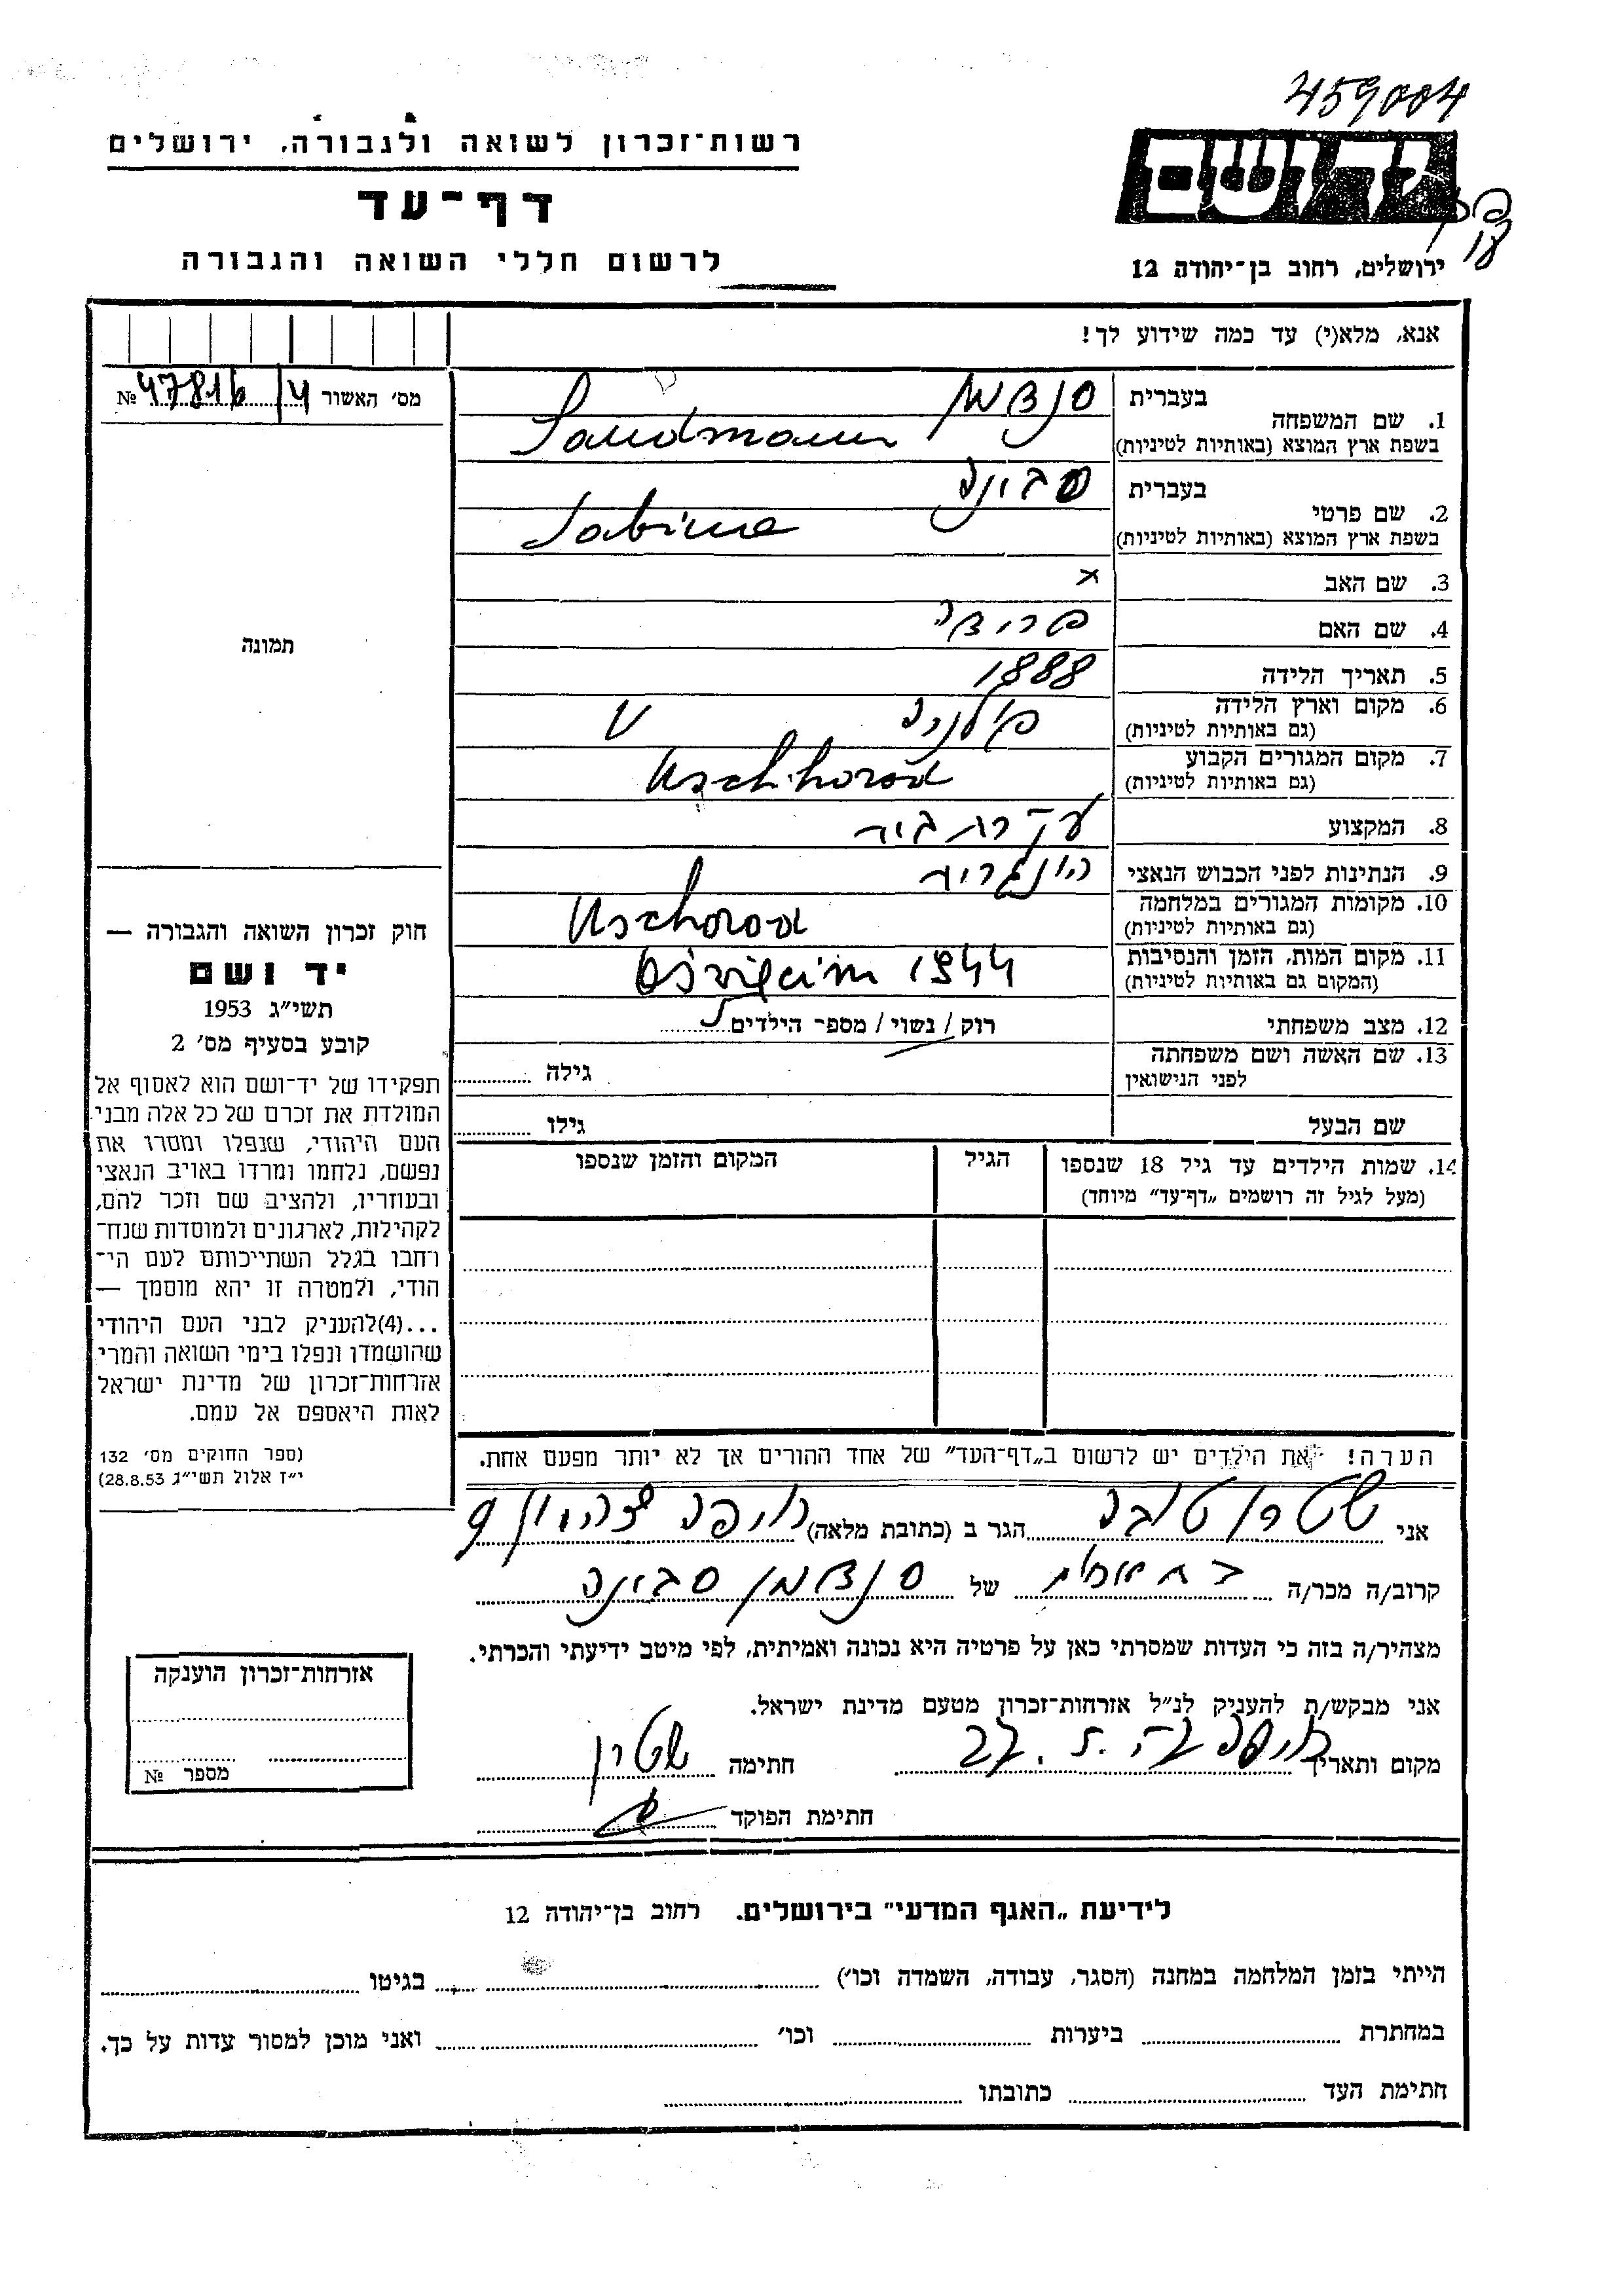 459004
רשות־זכרון לשואה ולגבורה, ירושלים
יד ושם
דף־עד
לרשום חללי השואה והגבורה
ירושלים, רחוב בן־יהודה 12
אנא, מלא(י) עד כמה שידוע לך!
מס׳ האשור 4 47816 №
1. שם המשפחה בעברית סנדמן
בשפת ארץ המוצא (באותיות לטיניות) Sandmann
2. שם פרטי בעברית סבינה
בשפת ארץ המוצא (באותיות לטיניות) Sabine
3. שם האב x
4. שם האם פרידה
תמונה
5. תאריך הלידה 1888
6. מקום וארץ הלידה
(גם באותיות לטיניות) פולניה V
7. מקום המגורים הקבוע
(גם באותיות לטיניות) Uschhorod
8. המקצוע עקרת בית
9. הנתינות לפני הכבוש הנאצי הונגרית
10. מקומות המגורים במלחמה
(גם באותיות לטיניות) Uschorod
11. מקום המות, הזמן והנסיבות
(המקום גם באותיות לטיניות) 1944
12. מצב משפחתי רוק / נשוי / מספר הילדים
13. שם האשה ושם משפחתה
לפני הנישואין גילה
שם הבעל גילו
14. שמות הילדים עד גיל 18 שנספו הגיל המקום והזמן שנספו
(מעל לגיל זה רושמים „דף־עד״ מיוחד)
חוק זכרון השואה והגבורה —
יד ושם
תשי״ג 1953
קובע בסעיף מס׳ 2
תפקידו של יד־ושם הוא לאסוף אל
המולדת את זכרם של כל אלה מבני
העם היהודי, שנפלו ומסרו את
נפשם, נלחמו ומרדו באויב הנאצי
ובעוזריו, ולהציב שם וזכר להם,
לקהילות, לארגונים ולמוסדות שנח־
רחבו בגלל השתייכותם לעם הי־
הודי, ולמטרה זו יהא מוסמך —
...(4)להעניק לבני העם היהודי
שהושמדו ונפלו בימי השואה והמרי
אזרחות־זכרון של מדינת ישראל
לאות היאספם אל עמם.
(ספר החוקים מס׳ 132
י״ז אלול תשי״ג 28.8.53)
הערה! את הילדים יש לרשום ב„דף־העד״ של אחד ההורים אך לא יותר מפעם אחת.
אני שטרן טובה הגר ב (כתובת מלאה) חיפה
קרוב/ה מכר/ה בת אחות של סנדמן סבינה
מצהיר/ה בזה כי העדות שמסרתי כאן על פרטיה היא נכונה ואמיתית, לפי מיטב ידיעתי והכרתי.
אני מבקש/ת להעניק לנ״ל אזרחות־זכרון מטעם מדינת ישראל.
מקום ותאריך חיפה חתימה שטרן
חתימת הפוקד
אזרחות־זכרון הוענקה
מספר №
לידיעת „האגף המדעי״ בירושלים. רחוב בן־יהודה 12
הייתי בזמן המלחמה במחנה (הסגר, עבודה, השמדה וכו׳) בגיטו
במחתרת ביערות וכו׳ ואני מוכן למסור עדות על כך.
חתימת העד כתובתו